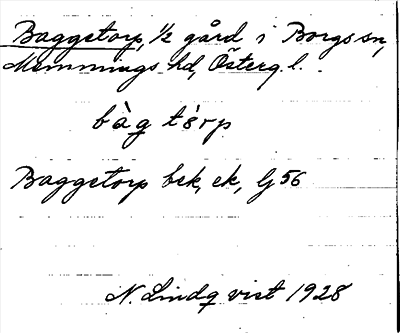 Baggetorp, 1/2 gård i Borgs sn,
Memmings hd, Österg. l.
bàg tórp
Baggetorp bsk, ek, G 56
N. Lindqvist 1928